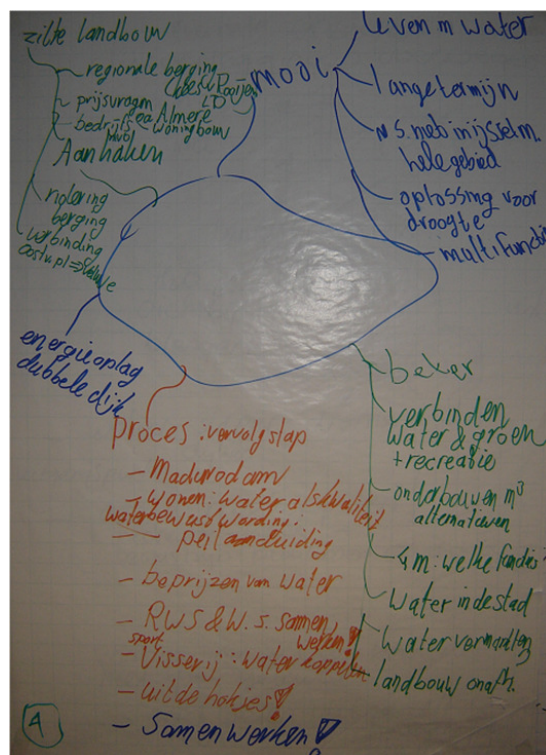 zilte landbouw
- regionale berging
- prijsvragen
- bedrijfs
oa Almere
woningbouw
LD
Aanhaken
riolering
berging
verbinding
mooi
leven m water
langetermijn
hele gebied
oplossing voor
droogte
multifunctie
energieopslag
dubbele dijk
beter
verbinden
water & groen
+ recreatie
onderbouwen m³
alternatieven
4 m: welke functies
Water in de stad
Water vermarkten
landbouw onafh.
proces: vervolgstap
- Madurodam
- wonen: water als kwaliteit
waterbewustwording:
- peilaanduiding
- beprijzen van water
- RWS & W.S. samen
werken!
sport
- Visserij: water koppelen
- uit de hokjes!
- Samenwerken!
4